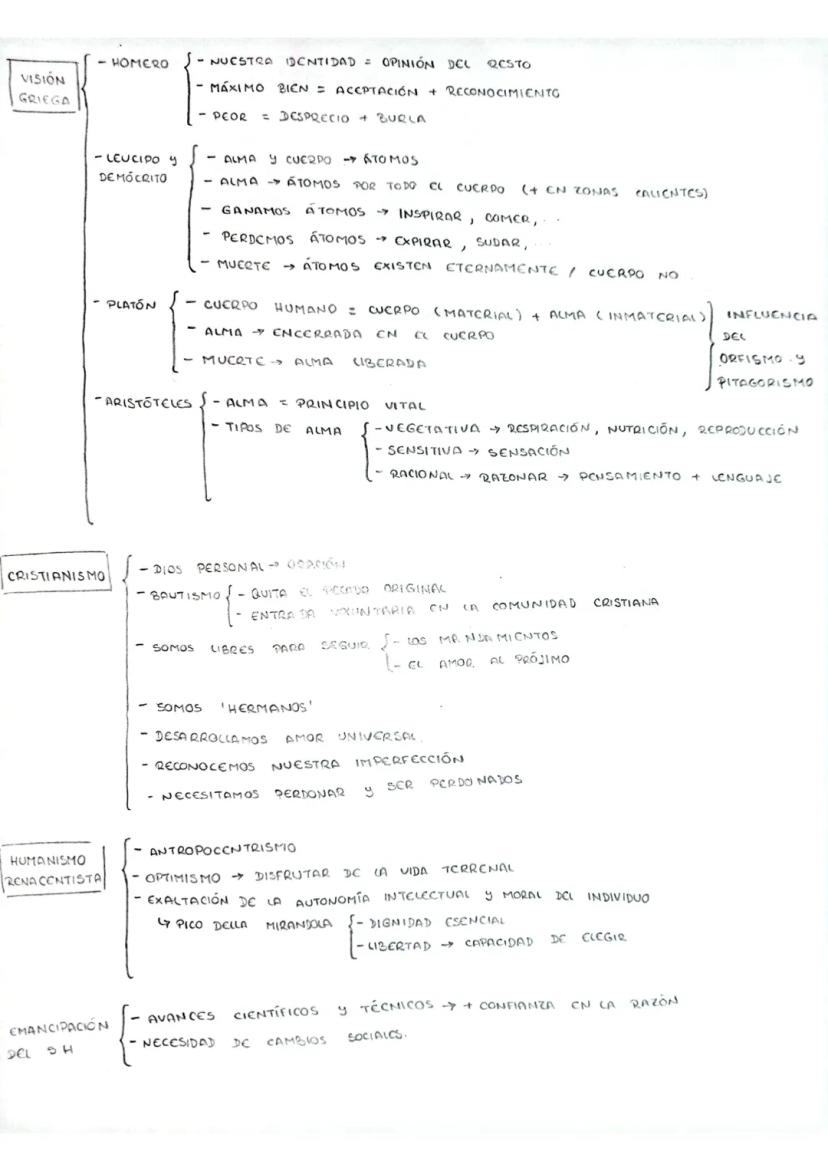 VISIÓN GRIEGA
- HOMERO
- NUESTRA IDENTIDAD = OPINIÓN DEL RESTO
- MÁXIMO BIEN = ACEPTACIÓN + RECONOCIMIENTO
- PEOR = DESPRECIO + BURLA
- LEUCIPO Y DEMÓCRITO
- ALMA Y CUERPO → ÁTOMOS
- ALMA → ÁTOMOS POR TODO EL CUERPO (+ EN ZONAS CALIENTES)
- GANAMOS ÁTOMOS → INSPIRAR, COMER, ...
- PERDEMOS ÁTOMOS → EXPIRAR, SUDAR, ...
- MUERTE → ÁTOMOS EXISTEN ETERNAMENTE / CUERPO NO
- PLATÓN
- CUERPO HUMANO = CUERPO (MATERIAL) + ALMA (INMATERIAL)
- ALMA → ENCERRADA EN EL CUERPO
- MUERTE → ALMA LIBERADA
INFLUENCIA
DEL
ORFISMO Y
PITAGORISMO
- ARISTÓTELES
- ALMA = PRINCIPIO VITAL
- TIPOS DE ALMA
- VEGETATIVA → RESPIRACIÓN, NUTRICIÓN, REPRODUCCIÓN
- SENSITIVA → SENSACIÓN
- RACIONAL → RAZONAR → PENSAMIENTO + LENGUAJE
CRISTIANISMO
- DIOS PERSONAL → ORACIÓN
- BAUTISMO
- QUITA EL PECADO ORIGINAL
- ENTRADA VOLUNTARIA EN LA COMUNIDAD CRISTIANA
- SOMOS LIBRES PARA SEGUIR
- LOS MANDAMIENTOS
- EL AMOR AL PRÓJIMO
- SOMOS 'HERMANOS'
- DESARROLLAMOS AMOR UNIVERSAL
- RECONOCEMOS NUESTRA IMPERFECCIÓN
- NECESITAMOS PERDONAR Y SER PERDONADOS
HUMANISMO
RENACENTISTA
- ANTROPOCENTRISMO
- OPTIMISMO → DISFRUTAR DE LA VIDA TERRENAL
- EXALTACIÓN DE LA AUTONOMÍA INTELECTUAL Y MORAL DEL INDIVIDUO
↳ PICO DELLA MIRANDOLA
- DIGNIDAD ESENCIAL
- LIBERTAD → CAPACIDAD DE ELEGIR
EMANCIPACIÓN
DEL SH
- AVANCES CIENTÍFICOS Y TÉCNICOS → + CONFIANZA EN LA RAZÓN
- NECESIDAD DE CAMBIOS SOCIALES.